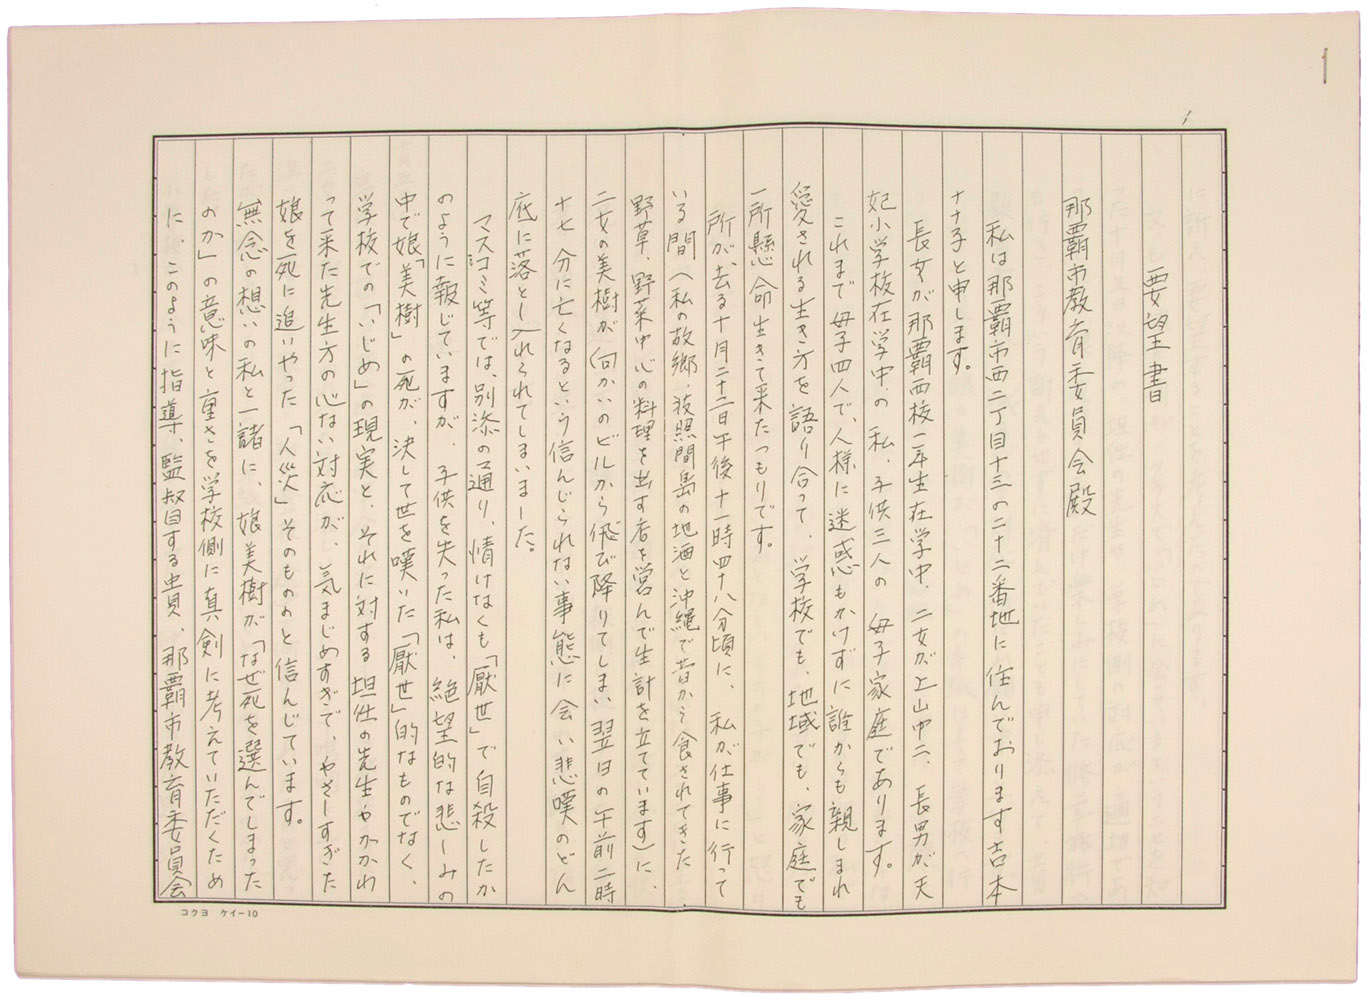 1
要望書
那覇市教育委員会殿
私は那覇市西二丁目十三の二十二番地に住んでおります吉本
ナナ子と申します。
長女が那覇西校一年生在学中、二女が上山中二、長男が天
妃小学校在学中の私、子供三人の母子家庭であります。
これまで母子四人で、人様に迷惑もかけずに誰からも親しまれ
愛される生き方を語り合って、学校でも、地域でも、家庭でも
一所懸命生きて来たつもりです。
所が、去る十月二十二日午後十一時四十八分頃に、私が仕事に行って
いる間（私の故郷、波照間島の地酒と沖縄で昔から食されてきた
野草、野菜中心の料理を出す店を営んで生計を立てています）に、
二女の美樹が、向かいのビルから飛び降りてしまい翌日の午前二時
十七分に亡くなるという信んじられない事態に会い悲嘆のどん
底に落とし入れられてしまいました。
マスコミ等では、別添の通り、情けなくも「厭世」で自殺したか
のように報じていますが、子供を失った私は、絶望的な悲しみの
中で娘「美樹」の死が、決して世を嘆いた「厭世」的なものでなく、
学校での「いじめ」の現実と、それに対する担任の先生やかかわ
って来た先生方の心ない対応が、気まじめすぎで、やさしすぎた
娘を死に追いやった「人災」そのものと信んじています。
無念の想いの私と一諸に、娘美樹が「なぜ死を選んでしまった
のか」の意味と重さを学校側に真剣に考えていただくため
に、このように指導、監督する貴員、那覇市教育委員会
コクヨ ケイ-10